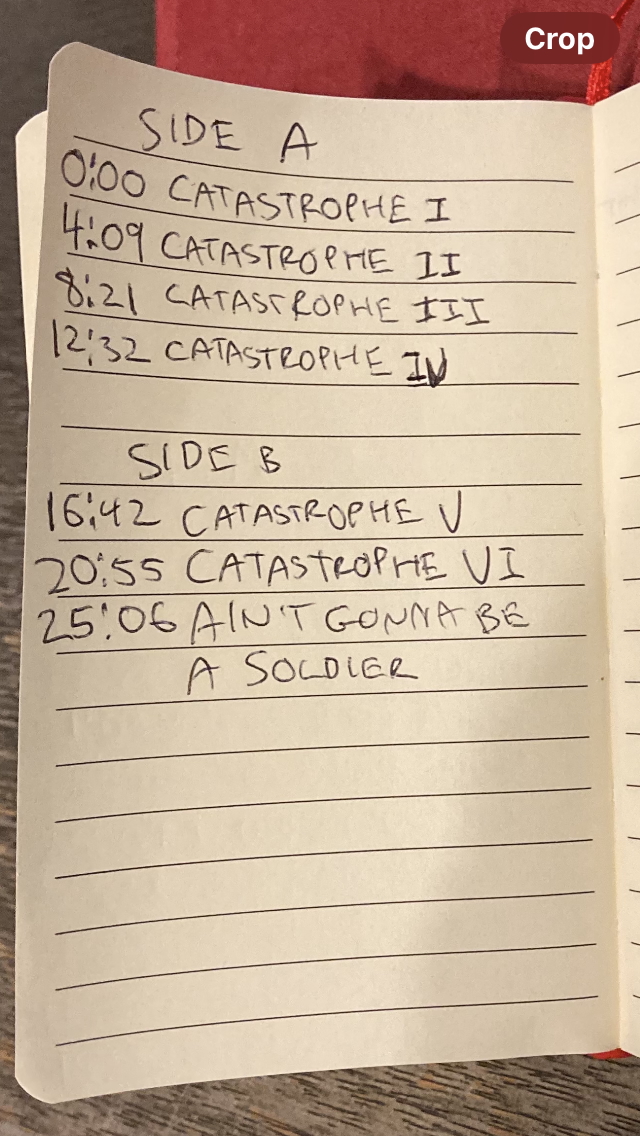 Crop
SIDE A
0:00 CATASTROPHE I
4:09 CATASTROPHE II
8:21 CATASTROPHE III
12:32 CATASTROPHE IV
SIDE B
16:42 CATASTROPHE V
20:55 CATASTROPHE VI
25:06 AIN'T GONNA BE
A SOLDIER